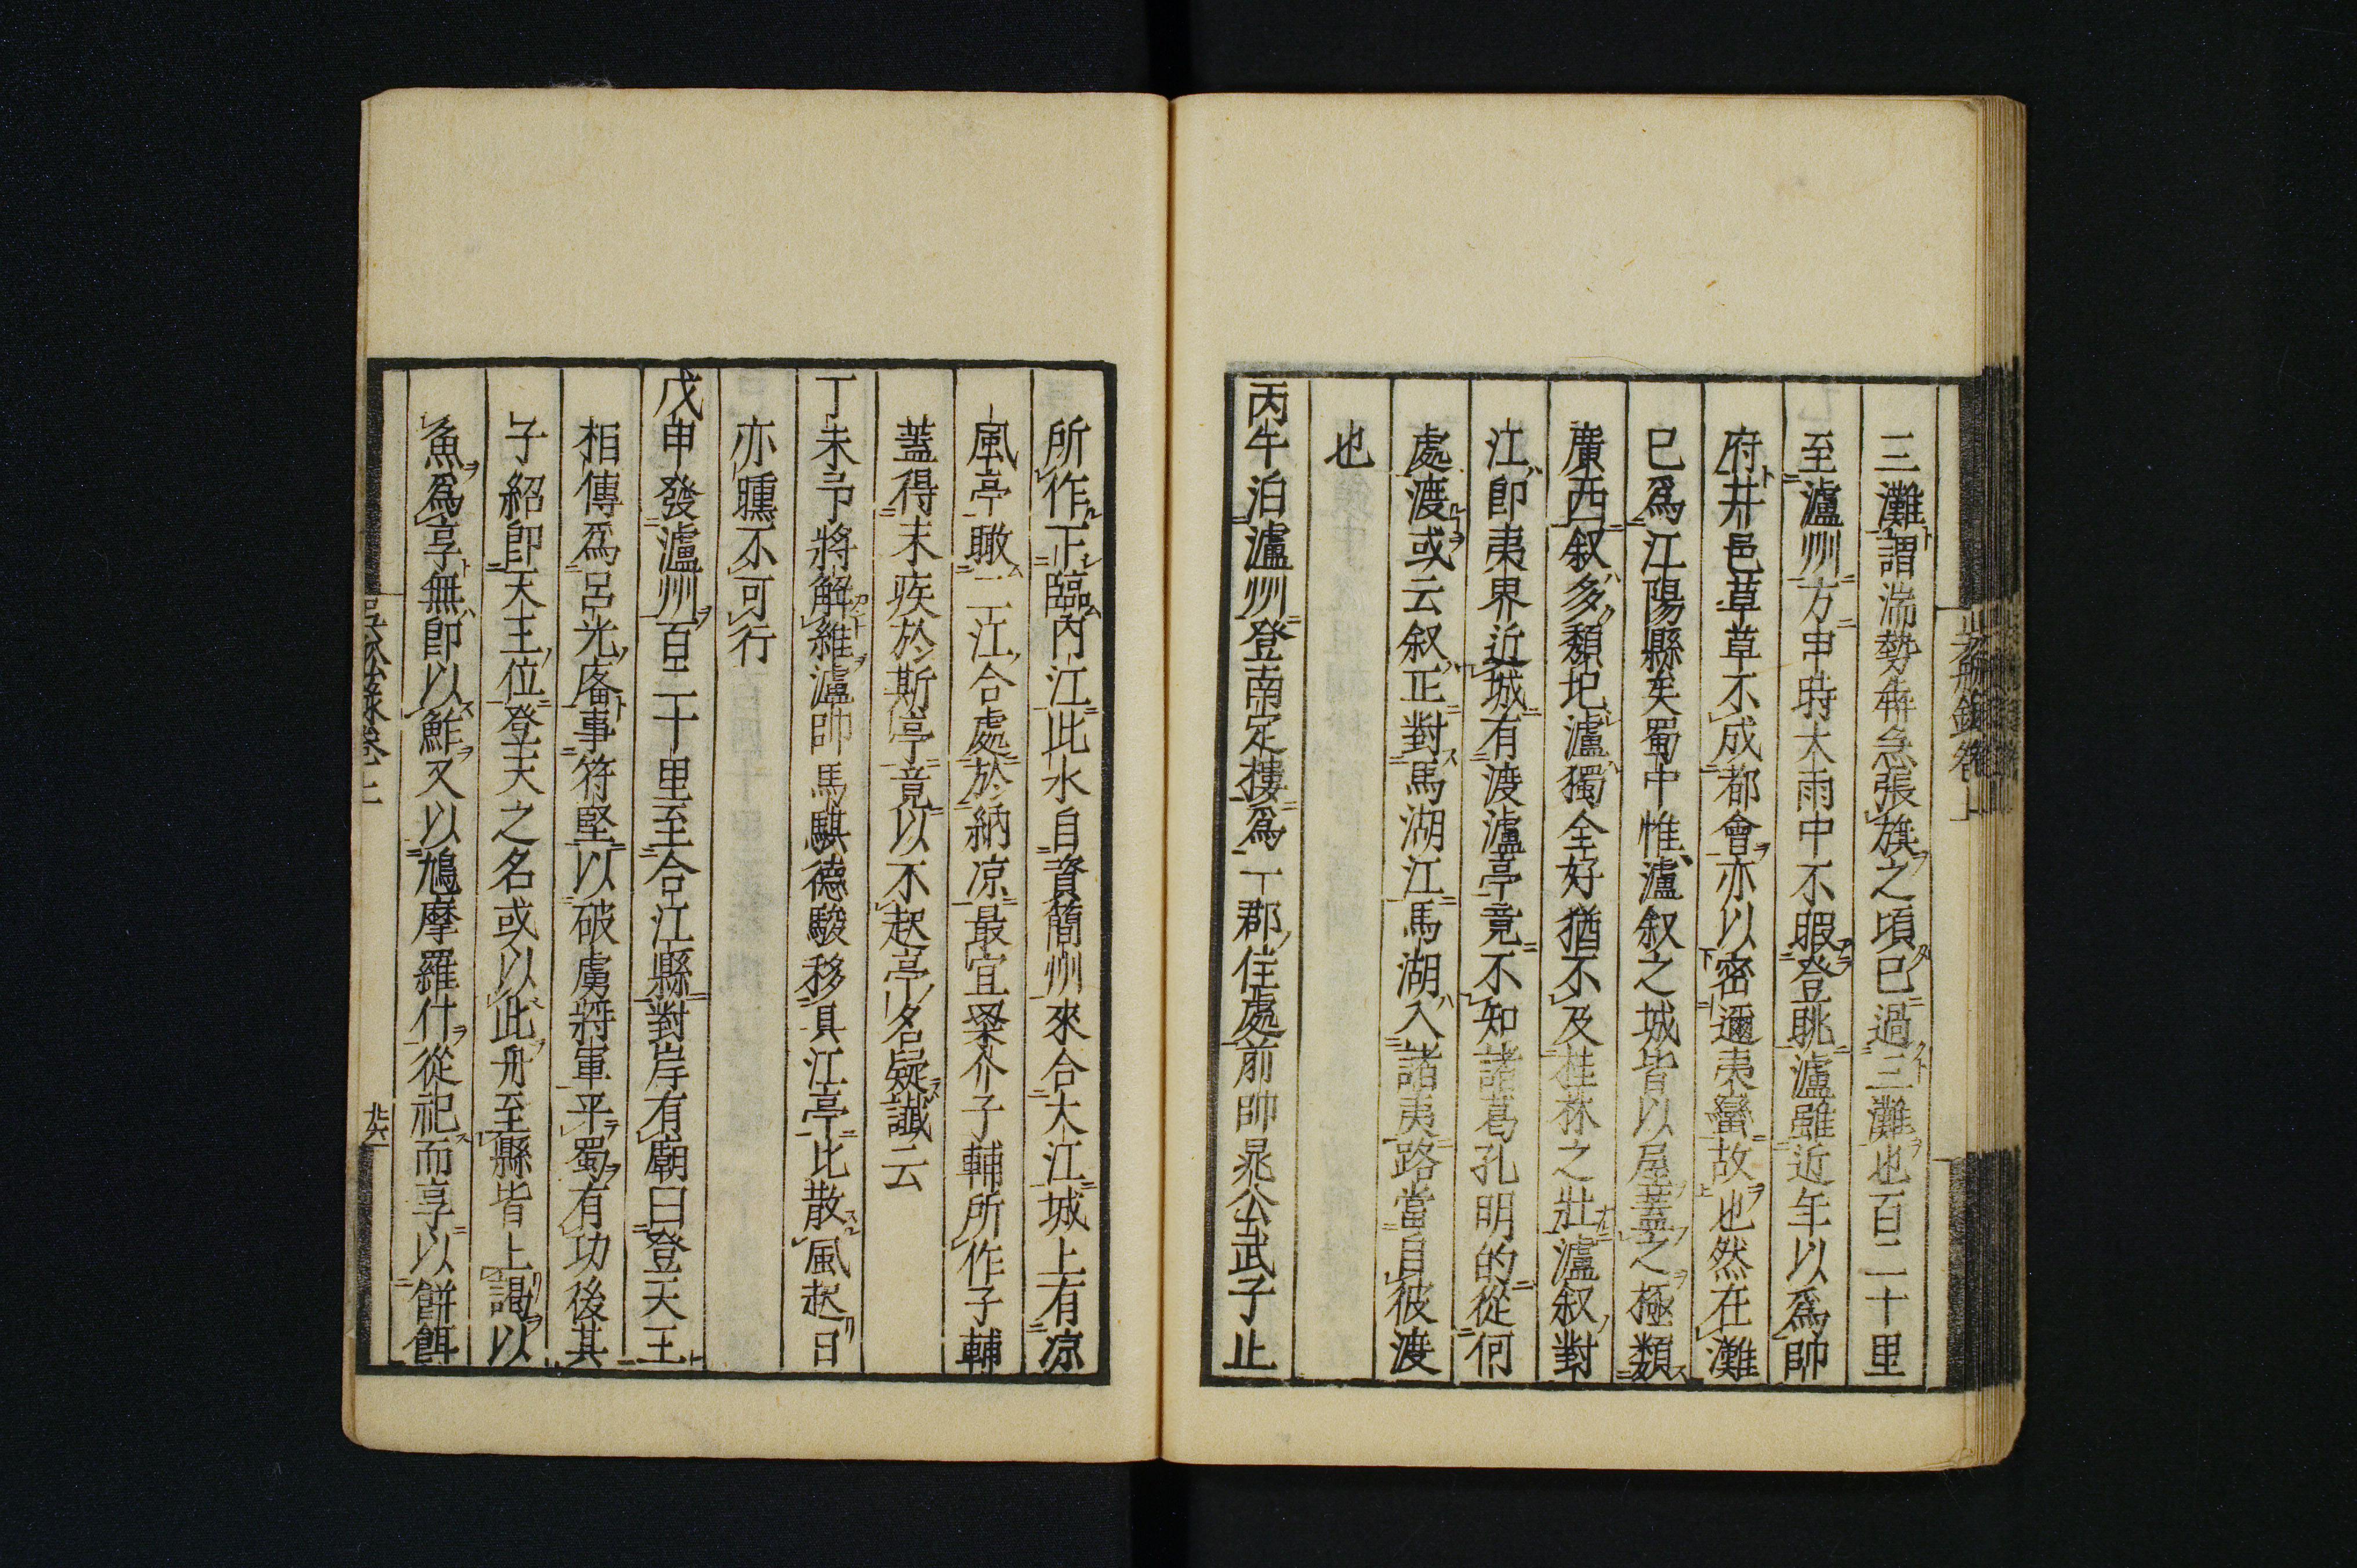 三灘謂湍勢犇急張旗之頃已過三灘也百二十里
至瀘州方申時大雨中不暇登眺瀘雖近年以爲帥
府井邑草草不成都會亦以密邇夷蠻故也然在灘
已爲江陽縣矣蜀中惟瀘叙之城皆以屋蓋之極類
廣西叙多頽圯瀘獨全好猶不及桂林之壯瀘叙對
江即夷界近城有渡瀘亭竟不知諸葛孔明的從何
處渡或云叙正對馬湖江馬湖入諸夷路當自彼渡
也
丙午泊瀘州登南定樓爲一郡佳處前帥晁公武子止
所作下臨内江此水自資簡州來合大江城上有凉
風亭瞰二江合處於納凉最宜梁介子輔所作子輔
蓋得末疾於斯亭竟以不起亭名疑讖云
丁未予將解維瀘帥馬騏德駿移具江亭比散風起日
亦曛不可行
戊申發瀘州百二十里至合江縣對岸有廟曰登天王
相傳爲呂光廟事符堅以破虜將軍平蜀有功後其
子紹即天王位登天之名或以此舟至縣皆上謁以
魚爲享無即以鮓又以鳩摩羅什從祀而享以餅餌